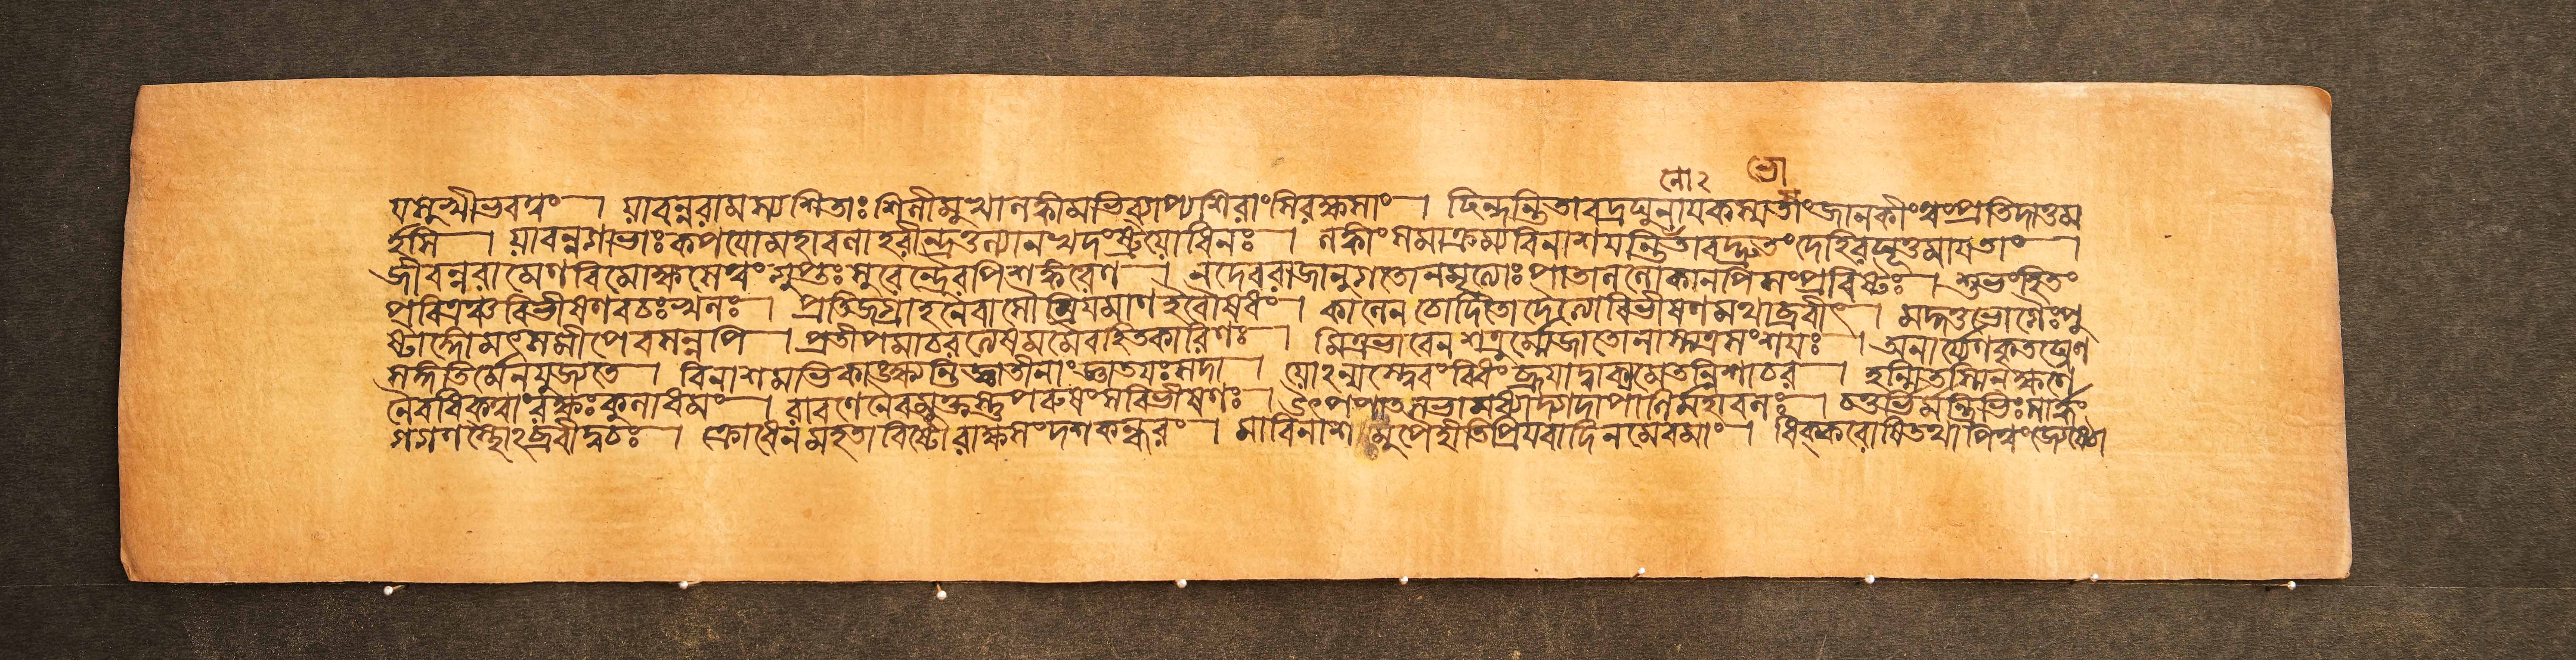 নো২ ভো
যসুখীভবত্বং । যাবন্নরামস্যশিতাঃশিলীমুখালঙ্কামভিব্যাপ্যশিরাংসিরক্ষসাং । ছিন্দন্তিতাবদ্রঘুনায়কস্যতাংজানকীংত্বংপ্রতিদাতুম
র্হসি । যাবন্নগাভাঃকপয়োমহাবলাহরীন্দ্রতুল্যানখদংষ্ট্রযোধিনঃ । লঙ্কাংসমাক্রম্যবিনাশয়ন্তিতাবদ্দ্রুতংদেহিরঘূত্তমায়তাং ।
জীবন্নরামেণবিমোক্ষসেত্বংগুপ্তঃসুরেন্দ্রৈরপিশঙ্করেণ । নদেবরাজানুগতোনমৃত্যোঃপাতাললোকানপিসংপ্রবিষ্টঃ । শুভংহিতং
পবিত্রঞ্চবিভীষণবচঃখলঃ । প্রতিজগ্রাহনৈবাসৌম্রিয়মাণইবৌষধং । কালেনচোদিতোদৈত্যোবিভীষণমথাব্রবীৎ । মদ্দত্তভোগৈঃপু
ষ্টাঙ্গোমৎসমীপেবসন্নপি । প্রতীপমাচরত্যেষমমৈবহিতকারিণঃ । মিত্রভাবেনশত্রুর্ম্মেজাতোনাস্ত্যত্রসংশয়ঃ । অনার্য্যেণকৃতঘ্নেণ
সঙ্গতির্মেনযুজ্যতে । বিনাশমভিকাঙ্ক্ষন্তিজ্ঞাতীনাংজ্ঞাতয়ঃসদা । যোঽন্যস্ত্বেবংবিধংব্রূয়াদ্বাক্যমেতন্নিশাচর । হন্মিতস্মিন্‌ক্ষণে
নৈবধিক্‌ত্বাংরক্ষঃকুলাধমং । রাবণেনৈবমুক্তস্তুপরুষংসবিভীষণঃ । উৎপপাতসভামধ্যাদ্গদাপাণির্মহাবলঃ । চতুর্ভির্মন্ত্রিভিঃসার্দ্ধং
গগণস্থোঽব্রবীদ্বচঃ । ক্রোধেনমহতাবিষ্টোরাক্ষসংদশকন্ধরং । মাবিনাশমুপৈহীতিপ্রিয়বাদিনমেবমাং । ধিক্‌করোষিতথাপিত্বংজ্যেষ্ঠো